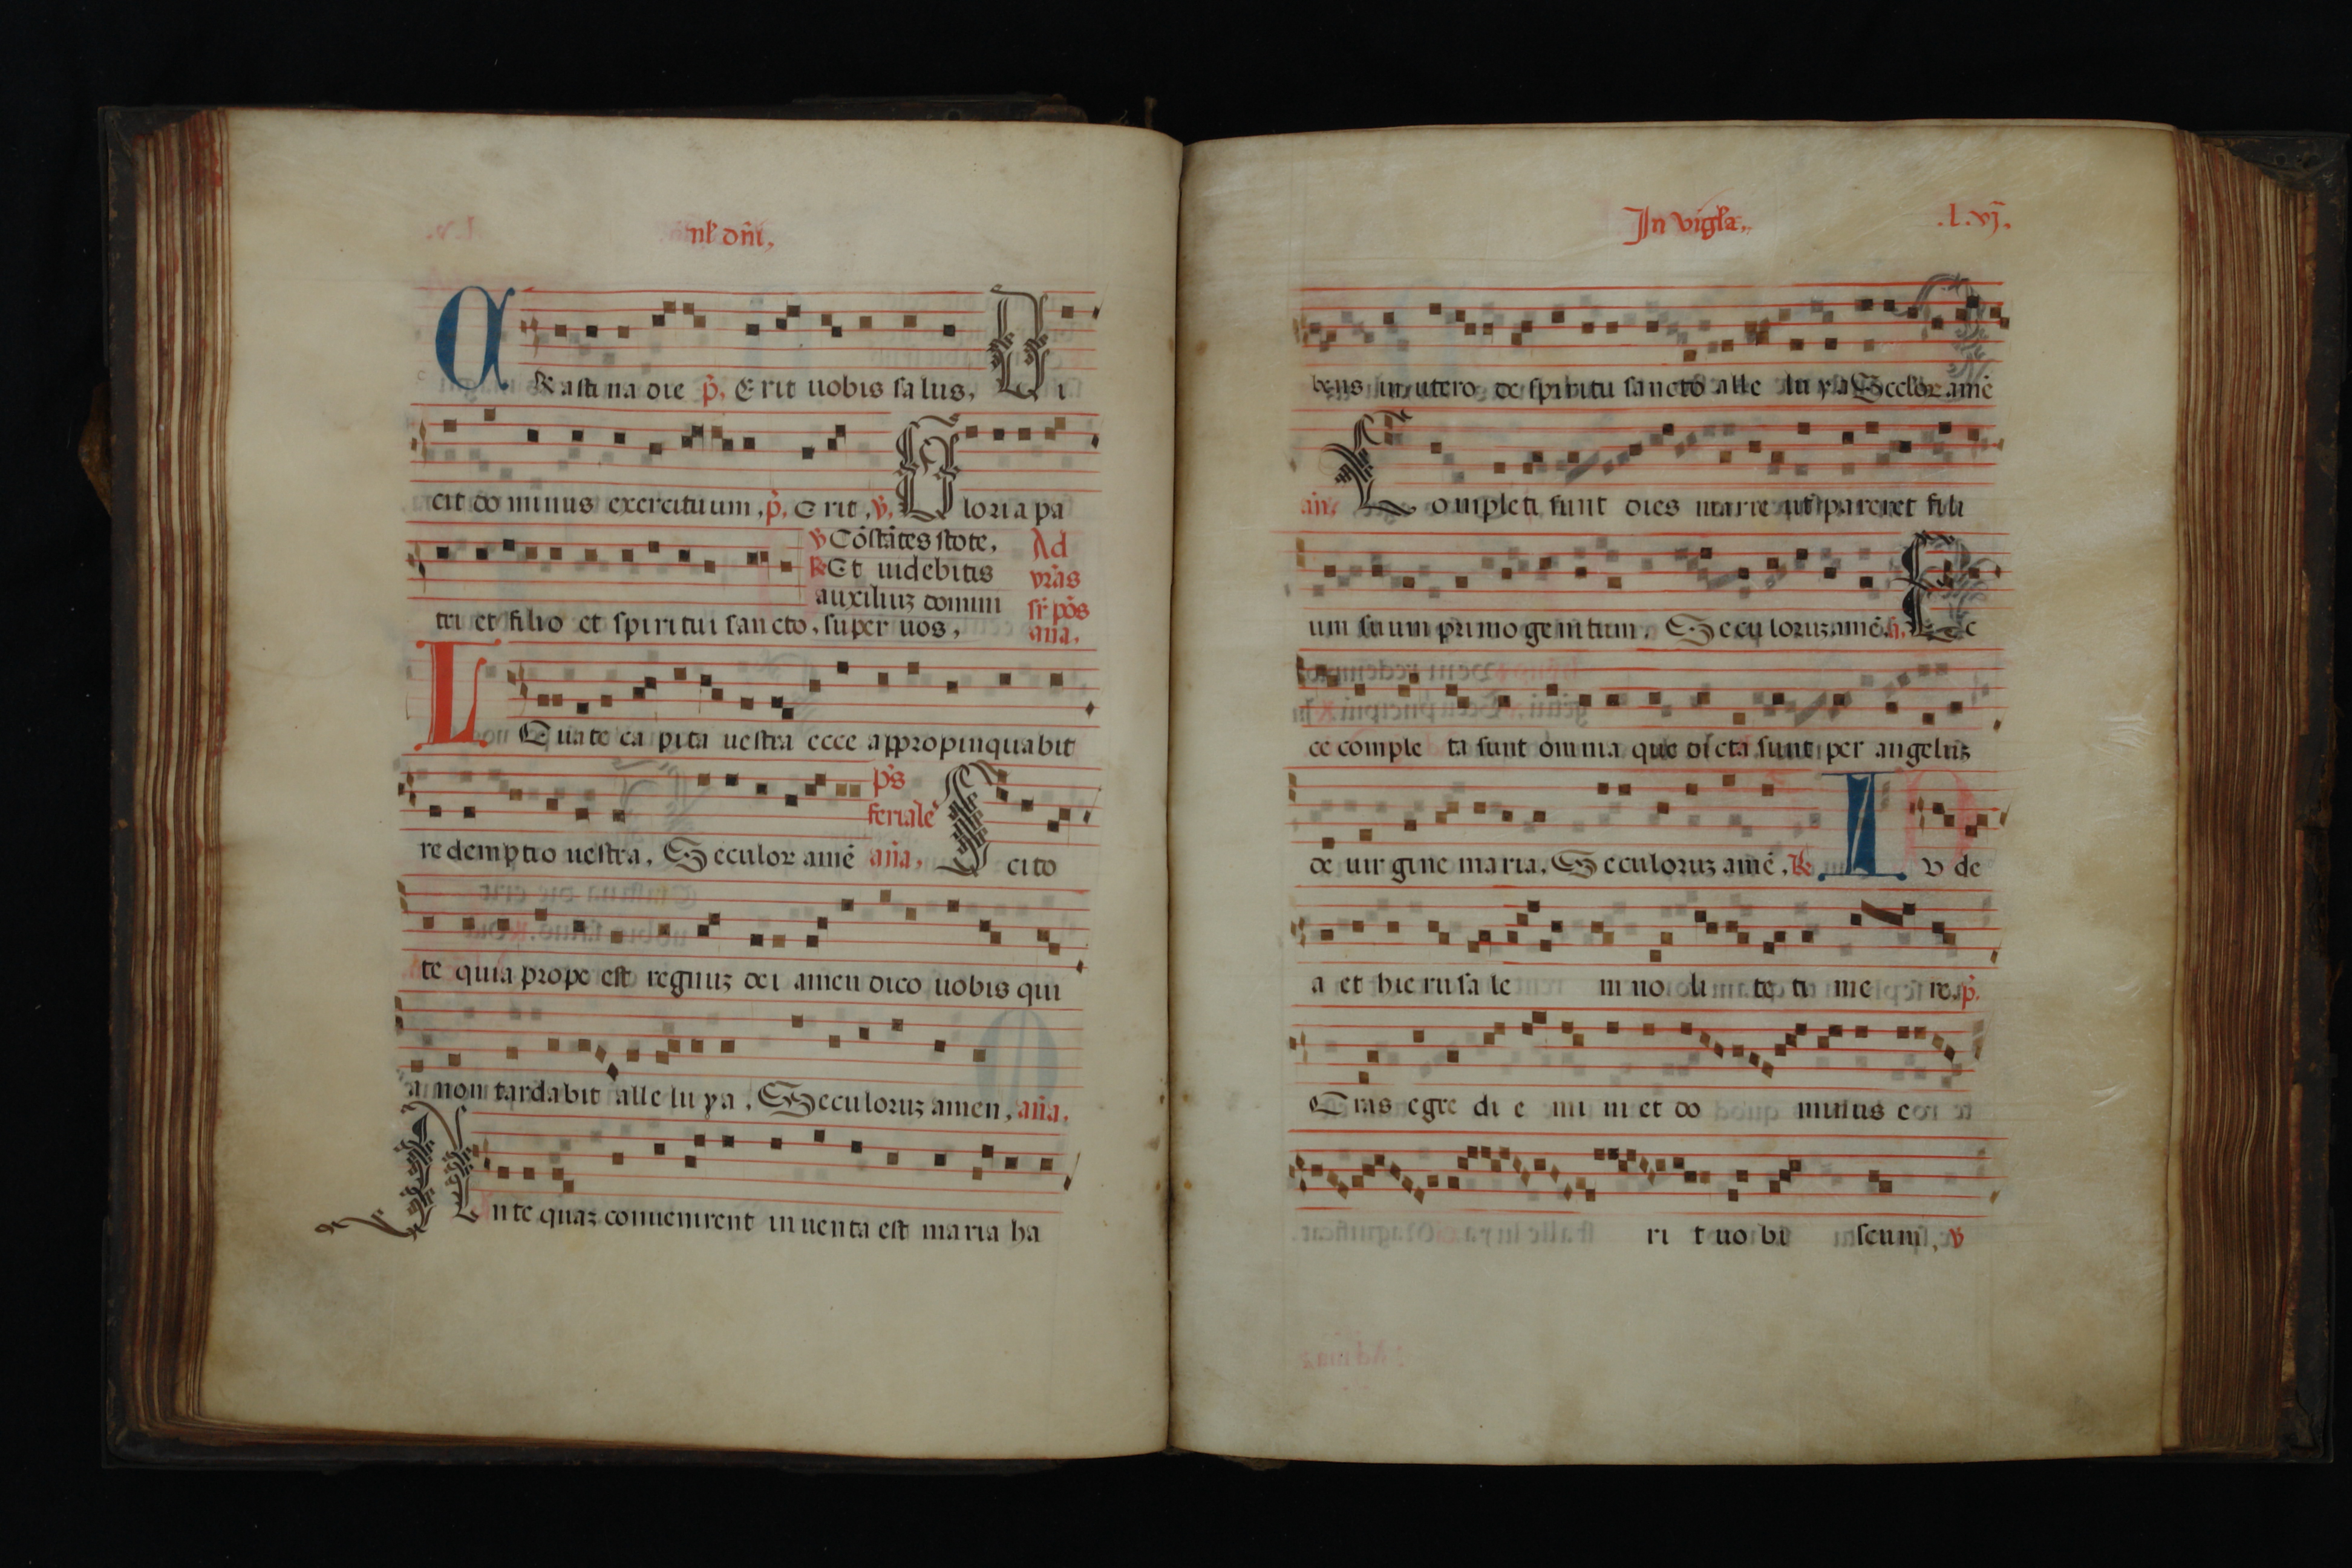 nł dñi,
CRastina die p̃. Erit uobis salus, Di
cit dominus exercituum, p̃. Erit, v̓. Gloria pa
v̓ Cōstātes stote, Ad
R̃ Et uidebitis vr̃as
auxiliuꝫ domini sr̃ pōs
tri et filio et spiritui sancto. super uos, aña.
LEuate capita uestra ecce appropinquabit
p̃s
redemptio uestra, Seculor amē feriale aña, Scito
te quia prope est regnuꝫ dei amen dico uobis qui
a non tardabit alleluya, Seculoruꝫ amen, aña.
Antequaꝫ conuenirent inuenta est maria ha
In vigła, .l.vj.
bens in utero de spiritu sancto alleluya Seclor amē
añ. Completi sunt dies marie ut pareret fili
um suum primogenitum. Seculoruꝫ amē. ã. Ec
ce completa sunt omnia que dicta sunt per angeluꝫ
de uirgine maria, Seculoruꝫ amē, R̃ IVde
a et hierusalem nolite timere. p̃.
Cras egredi emini et dominus e
rit uobiscum, v̓